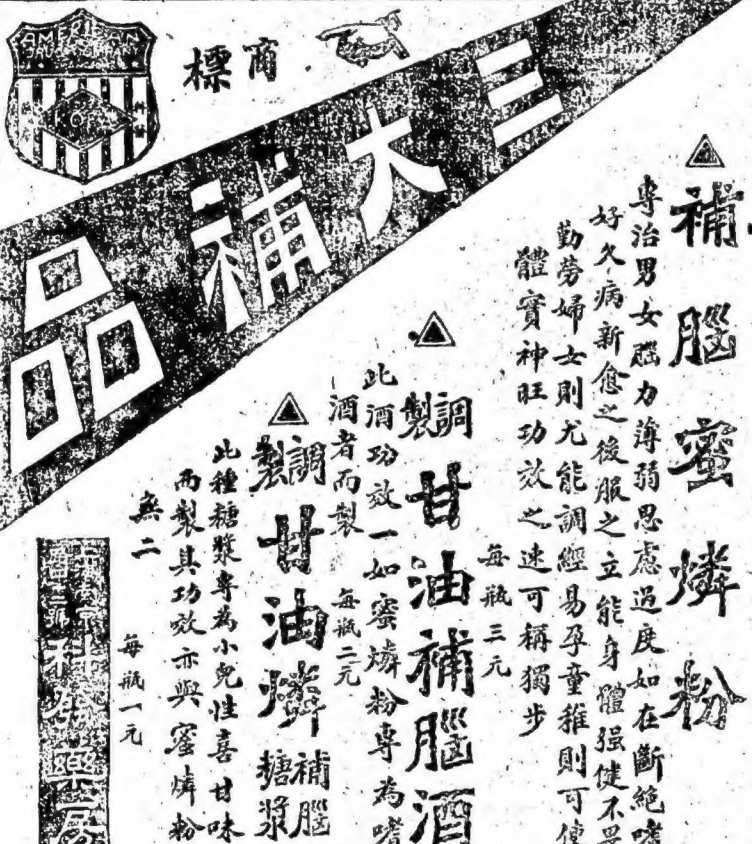 商標
AMERICAN
三大補品
補腦蜜燐粉
專治男女腦力薄弱思慮過度如在斷絕嗜
好久病新愈之後服之立能身體强健不畏
勤勞婦女則尤能調經易孕童稚則可使
體實神旺功效之速可稱獨步
每瓶三元
調製甘油補腦酒
此酒功效一如蜜燐粉專為嗜
酒者而製
每瓶二元
調製甘油燐補腦糖漿
此種糖漿專為小兒性喜甘味
而製其功效亦與蜜燐粉
無二
每瓶一元
藥房